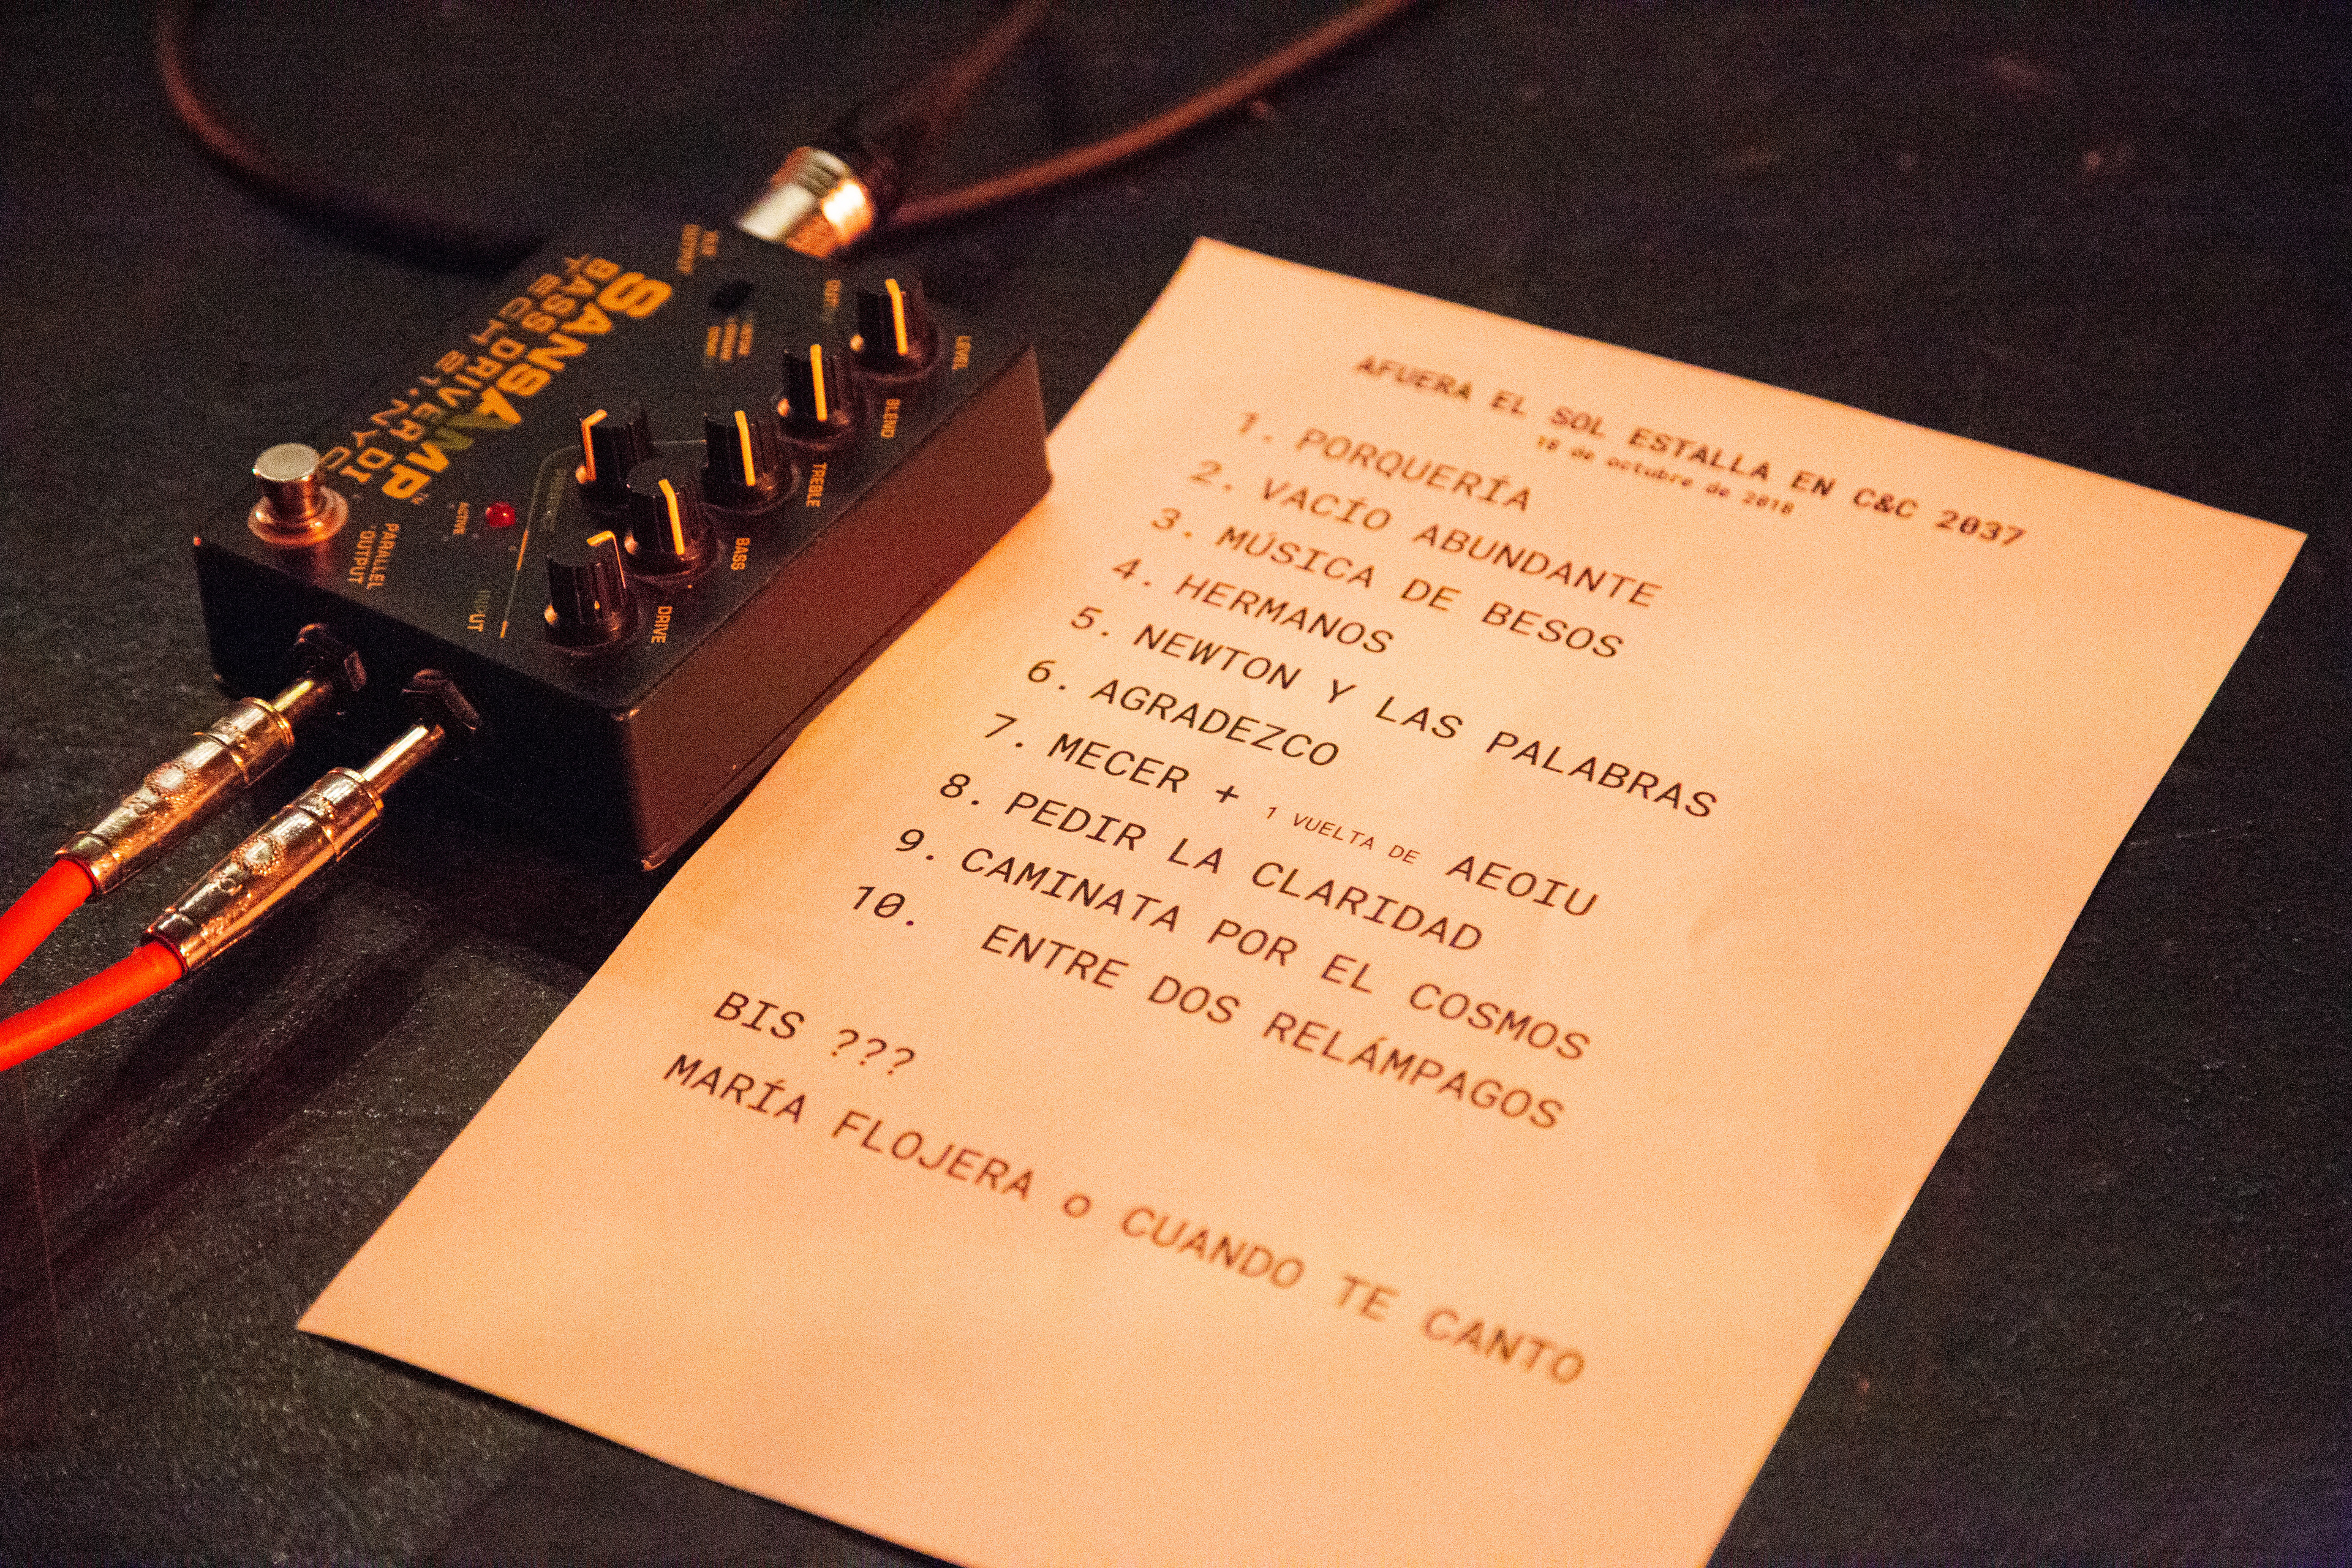 AFUERA EL SOL ESTALLA EN C&C 2037
18 de octubre de 2018
1. PORQUERÍA
2. VACÍO ABUNDANTE
3. MÚSICA DE BESOS
4. HERMANOS
5. NEWTON Y LAS PALABRAS
6. AGRADEZCO
7. MECER + 1 VUELTA DE AEOIU
8. PEDIR LA CLARIDAD
9. CAMINATA POR EL COSMOS
10. ENTRE DOS RELÁMPAGOS
BIS ???
MARÍA FLOJERA o CUANDO TE CANTO
SANSAMP
BASS DRIVER DI
TECH 21 NYC
LEVEL
BLEND
TREBLE
BASS
DRIVE
ACTIVE
PARALLEL
OUTPUT
INPUT